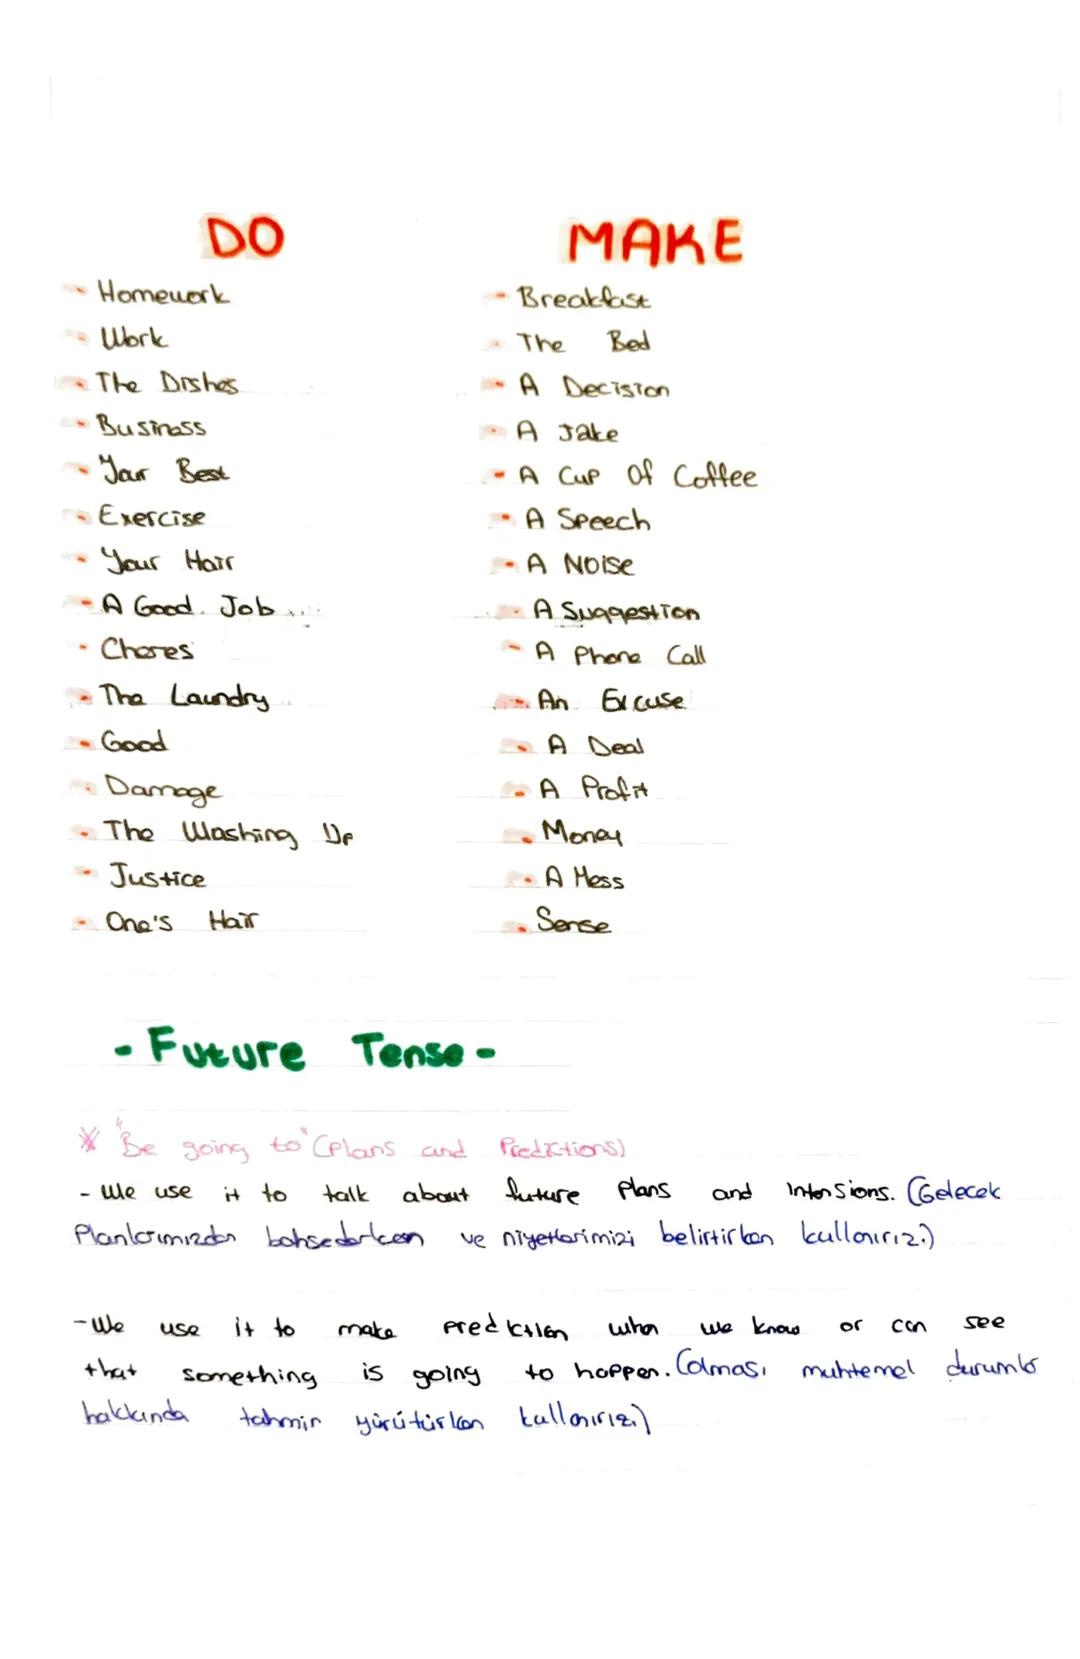 DO
- Homework
- Work
- The Dishes
- Business
- Your Best
- Exercise
- Your Hair
- A Good Job
- Chores
- The Laundry
- Good
- Damage
- The Washing Up
- Justice
- One's Hair
MAKE
- Breakfast
- The Bed
- A Decision
- A Jake
- A Cup Of Coffee
- A Speech
- A Noise
- A Suggestion
- A Phone Call
- An Excuse
- A Deal
- A Profit
- Money
- A Mess
- Sense
- Future Tense -
* "Be going to" (plans and Predictions)
- We use it to talk about future plans and intensions. (Gelecek
Planlarımızdan bahsederken ve niyetlerimizi belirtirken kullanırız.)
- We use it to make prediction when we know or can see
that something is going to happen. (olması muhtemel durumlar
hakkında tahmin yürütürken kullanırız.)